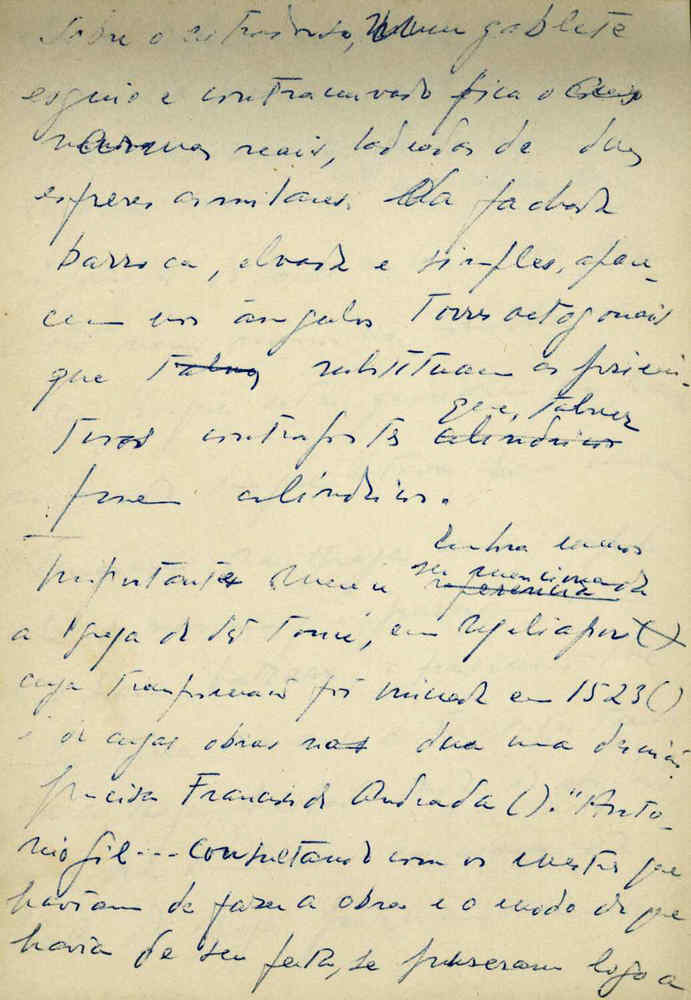 Sobre o entradorso, num gablete
esguio e contracurvado fica o
armas reais, ladeadas de duas
esferas armilares. Na fachada
barroca, elevada e simples, apare-
cem nos ângulos torres octogonais
que talvez substituam os primi-
que, talvez
tivos contrafortes cilindricos
fossem cilíndricos.
Embora menos
Importante merece ser mencionada
referencia
a Igreja de São Tomé, em Meliapor ()
cuja transformação foi iniciada em 1523 ()
e de cujas obras nos dá uma descrição
precisa Francisco de Andrada (). "Anto-
nio Gil --- Consultando com os mestres que
haviam de fazer a obra e o modo de que
havia de ser feita, se puseram logo a